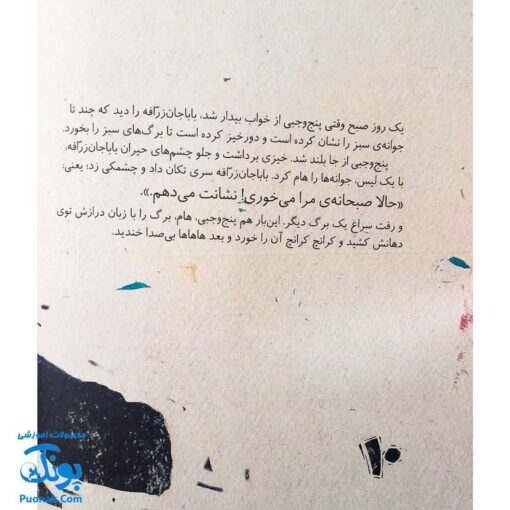 یک روز صبح وقتی پنج‌وجبی از خواب بیدار شد، باباجان‌زرّافه را دید که چند تا
جوانه‌ی سبز را نشان کرده است و دورخیز کرده است تا برگ‌های سبز را بخورد.
پنج‌وجبی از جا بلند شد. خیزی برداشت و جلو چشم‌های حیران باباجان‌زرّافه،
با یک لیس، جوانه‌ها را هام کرد. باباجان‌زرّافه سری تکان داد و چشمکی زد؛ یعنی:
«حالا صبحانه‌ی مرا می‌خوری! نشانت می‌دهم.».
و رفت سراغِ یک برگ دیگر. این‌بار هم پنج‌وجبی، هام، برگ را با زبان درازش توی
دهانش کشید و کرانچ کرانچ آن را خورد و بعد هاهاها بی‌صدا خندید.
محصولات آموزشی
پونک
Puonak.Com
۲۰